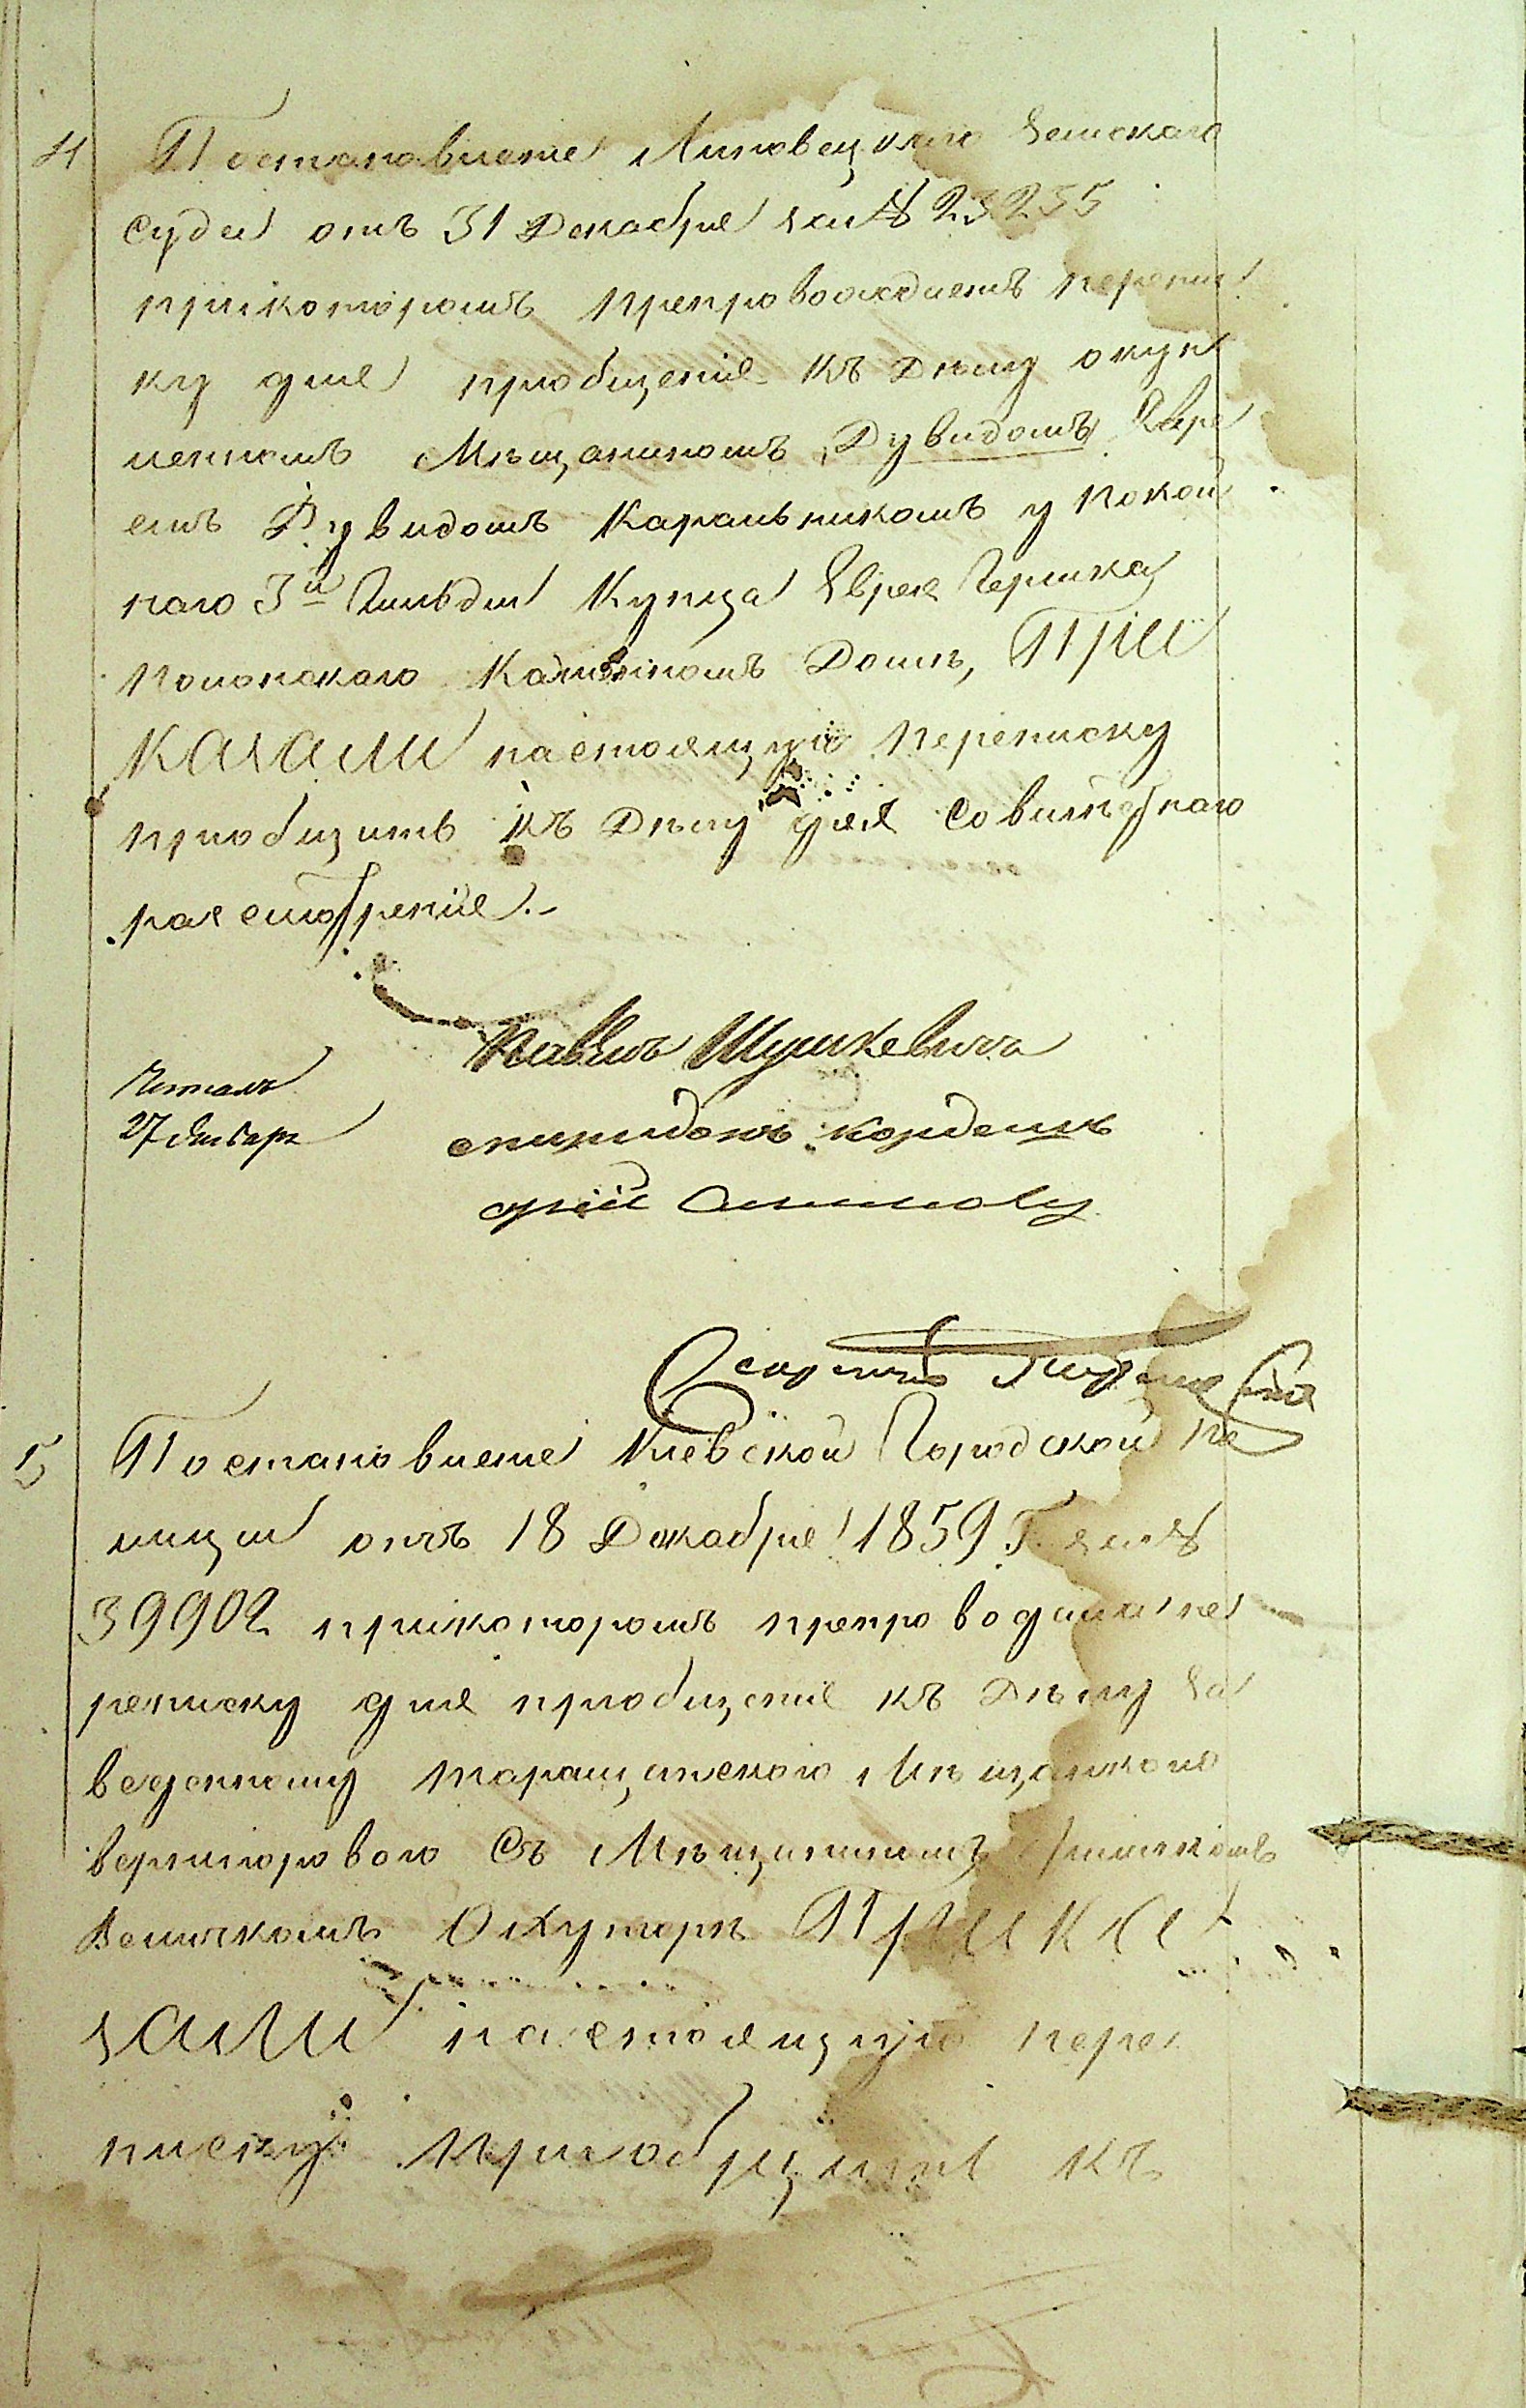 4 Постановленіе Липовецкаго Земскаго
Суда отъ 31 Декабря за № 23235
прикоторомъ препровождаетъ перепис
ку для пріобщенія къ Дѣлу о куп
ленномъ Мѣщаниномъ Дувидомъ Евре
емъ Дувидомъ Каральникомъ у Покой
наго 3й Гильдіи Купца Еврея Гершка
Полонскаго Каменномъ Домѣ, При
казали настоящую переписку
пріобщить къ Дѣлу для совмѣстнаго
разсмотрѣнія.
Павелъ Шушкевичъ
Читалъ
27 Января
спиридонъ
5 Постановленіе Кіевской Городской По
лиціи отъ 18 Декабря 1859 Г. за №
39902 прикоторомъ препроводила пе
реписку для пріобщенія къ Дѣлу за
веденному таращанскою Мѣщанкою
Съ Мѣщаниномъ
Величкомъ О хуторѣ Прика
зали настоящую пере
писку пріобщить къ